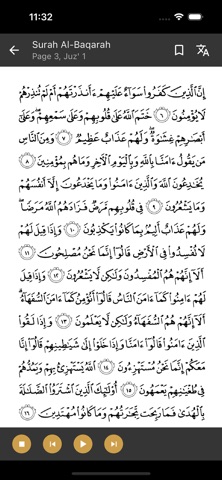 11:32
Surah Al-Baqarah
Page 3, Juz' 1
إِنَّ ٱلَّذِينَ كَفَرُوا۟ سَوَآءٌ عَلَيْهِمْ ءَأَنذَرْتَهُمْ أَمْ لَمْ تُنذِرْهُمْ
لَا يُؤْمِنُونَ ٦ خَتَمَ ٱللَّهُ عَلَىٰ قُلُوبِهِمْ وَعَلَىٰ سَمْعِهِمْ ۖ وَعَلَىٰٓ
أَبْصَٰرِهِمْ غِشَٰوَةٌ ۖ وَلَهُمْ عَذَابٌ عَظِيمٌ ٧ وَمِنَ ٱلنَّاسِ
مَن يَقُولُ ءَامَنَّا بِٱللَّهِ وَبِٱلْيَوْمِ ٱلْءَاخِرِ وَمَا هُم بِمُؤْمِنِينَ ٨
يُخَٰدِعُونَ ٱللَّهَ وَٱلَّذِينَ ءَامَنُوا۟ وَمَا يَخْدَعُونَ إِلَّآ أَنفُسَهُمْ
وَمَا يَشْعُرُونَ ٩ فِى قُلُوبِهِم مَّرَضٌ فَزَادَهُمُ ٱللَّهُ مَرَضًا ۖ
وَلَهُمْ عَذَابٌ أَلِيمٌۢ بِمَا كَانُوا۟ يَكْذِبُونَ ١٠ وَإِذَا قِيلَ لَهُمْ
لَا تُفْسِدُوا۟ فِى ٱلْأَرْضِ قَالُوٓا۟ إِنَّمَا نَحْنُ مُصْلِحُونَ ١١
أَلَآ إِنَّهُمْ هُمُ ٱلْمُفْسِدُونَ وَلَٰكِن لَّا يَشْعُرُونَ ١٢ وَإِذَا قِيلَ
لَهُمْ ءَامِنُوا۟ كَمَآ ءَامَنَ ٱلنَّاسُ قَالُوٓا۟ أَنُؤْمِنُ كَمَآ ءَامَنَ ٱلسُّفَهَآءُ ۗ
أَلَآ إِنَّهُمْ هُمُ ٱلسُّفَهَآءُ وَلَٰكِن لَّا يَعْلَمُونَ ١٣ وَإِذَا لَقُوا۟
ٱلَّذِينَ ءَامَنُوا۟ قَالُوٓا۟ ءَامَنَّا وَإِذَا خَلَوْا۟ إِلَىٰ شَيَٰطِينِهِمْ قَالُوٓا۟ إِنَّا
مَعَكُمْ إِنَّمَا نَحْنُ مُسْتَهْزِءُونَ ١٤ ٱللَّهُ يَسْتَهْزِئُ بِهِمْ وَيَمُدُّهُمْ
فِى طُغْيَٰنِهِمْ يَعْمَهُونَ ١٥ أُو۟لَٰٓئِكَ ٱلَّذِينَ ٱشْتَرَوُا۟ ٱلضَّلَٰلَةَ
بِٱلْهُدَىٰ فَمَا رَبِحَت تِّجَٰرَتُهُمْ وَمَا كَانُوا۟ مُهْتَدِينَ ١٦